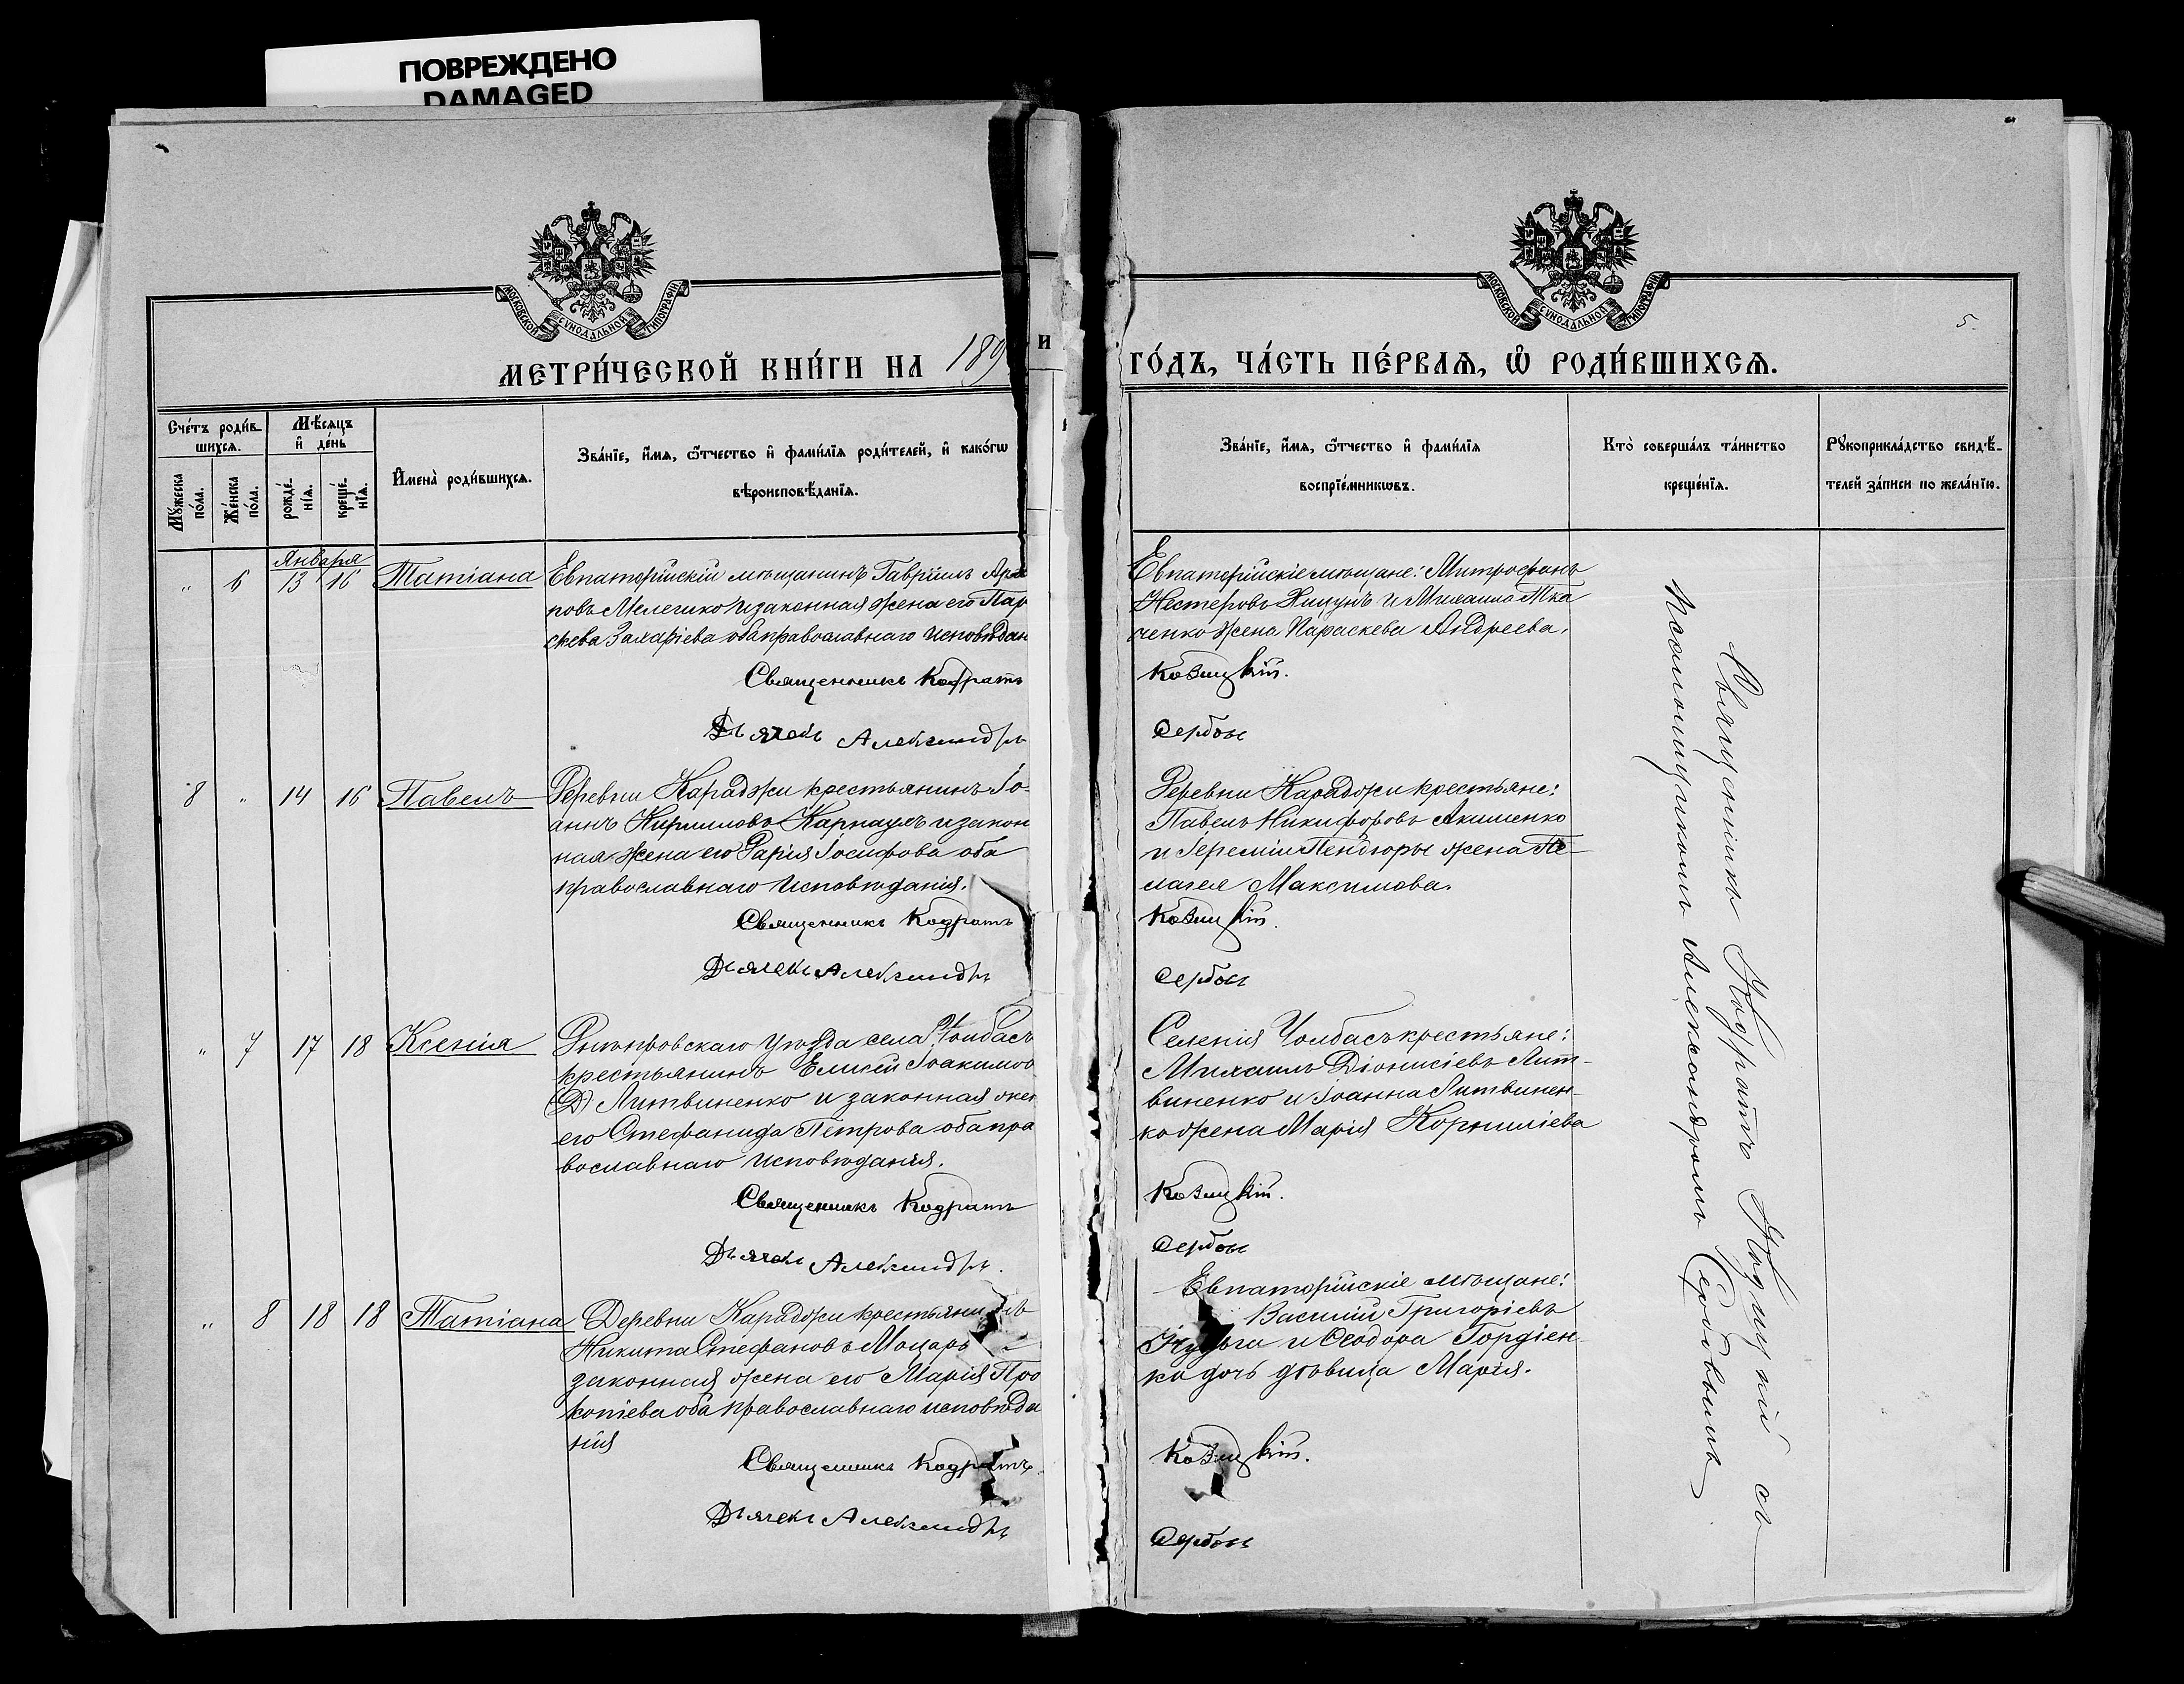 ПОВРЕЖДЕНО
DAMAGED
МОСКОВСКОЙ СѴНОДАЛЬНОЙ ТИПОГРАФІИ
МОСКОВСКОЙ СѴНОДАЛЬНОЙ ТИПОГРАФІИ
5.
МЕТРИ́ЧЕСКОЙ КНИ́ГИ НА 189
ГО́ДЪ, ЧА́СТЬ ПЕ́РВАѦ, Ѡ РОДИ́ВШИХСѦ.
Сче́тъ роди́в-
шихсѧ.
Мꙋ́жеска
по́ла.
Же́нска
по́ла.
Мѣ́сѧцъ
и҆ де́нь
рожде́-
нїѧ.
креще́-
нїѧ.
И҆мена̀ роди́вшихсѧ.
Зва́нїе, и҆́мѧ, ѻ҆́тчество и҆ фами́лїѧ роди́телей, и҆ како́гѡ
вѣроисповѣ́данїѧ.
Зва́нїе, и҆́мѧ, ѻ҆́тчество и҆ фами́лїѧ
воспрїе́мникѡвъ.
Кто̀ соверша́лъ та́инство
креще́нїѧ.
Рꙋкоприкла́дство свидѣ́-
телей за́писи по жела́нїю.
Января
" 6 13 16 Татіана
Евпаторійскій мѣщанинъ Гавріилъ
повъ Мелешко и законная жена его Пар
скева Захаріева оба православнаго исповѣдан
Священникъ Кодратъ
Дьячекъ Александръ
Евпаторійскіе мѣщане: Митрофанъ
Нестеровъ и Михаила Тка
ченко жена Параскева Андреева.
Козицкій.
Сербовъ
8 " 14 16 Павелъ
Деревни Караджи крестьянинъ Іо-
аннъ Кирилловъ Карнаухъ и закон
ная жена его Дарія Іосифова оба
православнаго исповѣданія.
Священникъ Кодратъ
Дьячекъ Александръ
Деревни Караджи крестьяне:
Павелъ Никифоровъ Акименко
и Іереміи Пендюры жена Пе-
лагея Максимова.
Козицкій.
Сербовъ
" 7 17 18 Ксенія
Днѣпровскаго уѣзда села Чолбасъ
крестьянинъ Елисей Іоакимов
(Д) Литвиненко и законная жен
его Стефанида Петрова оба пра
вославнаго исповѣданія.
Священникъ Кодратъ
Дьячекъ Александръ.
Селенія Чолбасъ крестьяне:
Михаилъ Діонисіевъ Лит-
виненко и Іоанна Литвинен-
ко жена Марія Корниліева
Козицкій.
Сербовъ
" 8 18 18 Татіана
Деревни Караджи крестьянинъ
Никита Стефановъ Моцарь
законная жена его Марія Про
копіева оба православнаго исповѣда
нія
Священникъ Кодратъ.
Дьячекъ Александръ
Евпаторійскіе мѣщане:
Василій Григоріевъ
и Ѳеодора Гордіен-
ко дочь дѣвица Марія.
Козицкій.
Сербовъ
Священникъ Кодратъ Козицкій съ
Псаломщикомъ Александромъ Сербовымъ